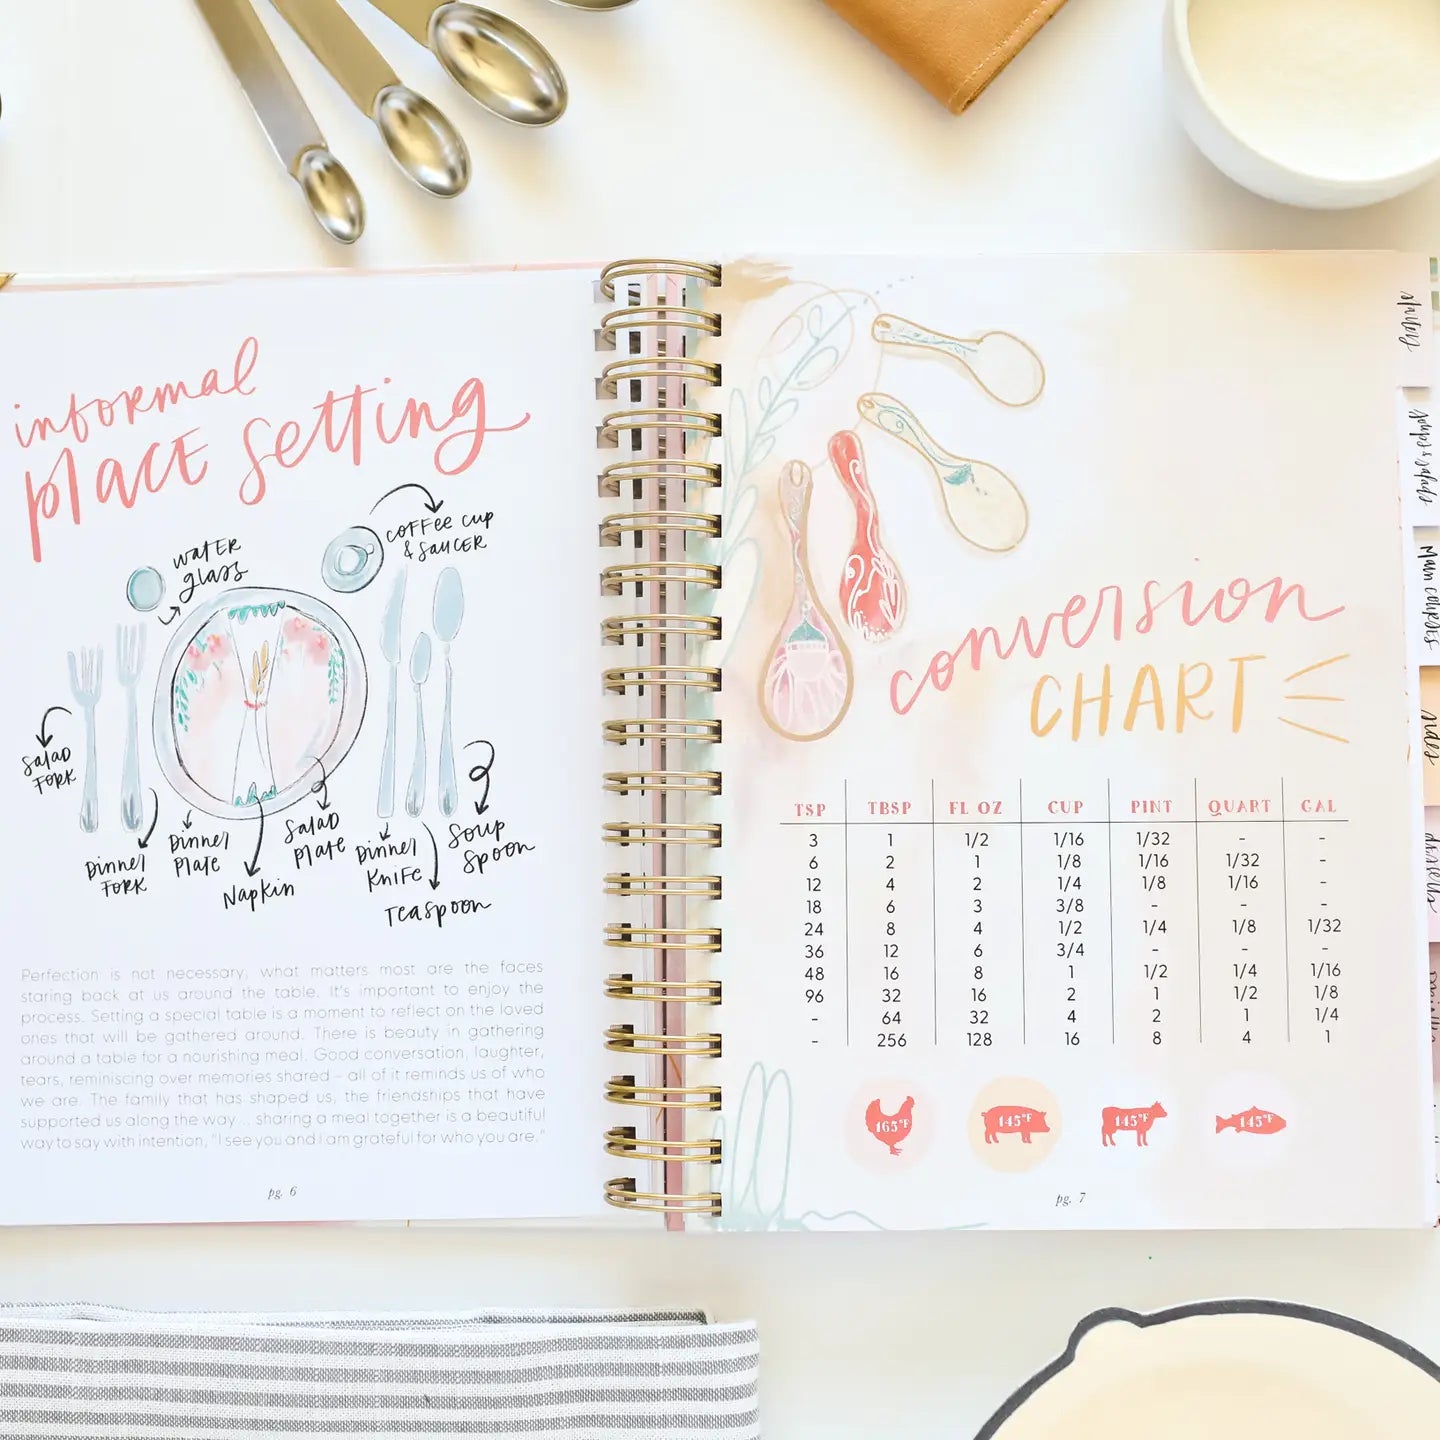 informal
place setting
coffee cup
& saucer
water
glass
salad
fork
Dinner
fork
Dinner
plate
Napkin
salad
plate
Dinner
knife
Teaspoon
soup
spoon
Perfection is not necessary, what matters most are the faces
staring back at us around the table. It's important to enjoy the
process. Setting a special table is a moment to reflect on the loved
ones that will be gathered around. There is beauty in gathering
around a table for a nourishing meal. Good conversation, laughter,
tears, reminiscing over memories shared – all of it reminds us of who
we are. The family that has shaped us, the friendships that have
supported us along the way... sharing a meal together is a beautiful
way to say with intention, "I see you and I am grateful for who you are."
pg. 6
conversion
CHART
TSP TBSP FL OZ CUP PINT QUART GAL
3 1 1/2 1/16 1/32 - -
6 2 1 1/8 1/16 1/32 -
12 4 2 1/4 1/8 1/16 -
18 6 3 3/8 - - -
24 8 4 1/2 1/4 1/8 1/32
36 12 6 3/4 - - -
48 16 8 1 1/2 1/4 1/16
96 32 16 2 1 1/2 1/8
- 64 32 4 2 1 1/4
- 256 128 16 8 4 1
165°F 145°F 145°F 145°F
pg. 7
soups & salads
Main courses
sides
desserts